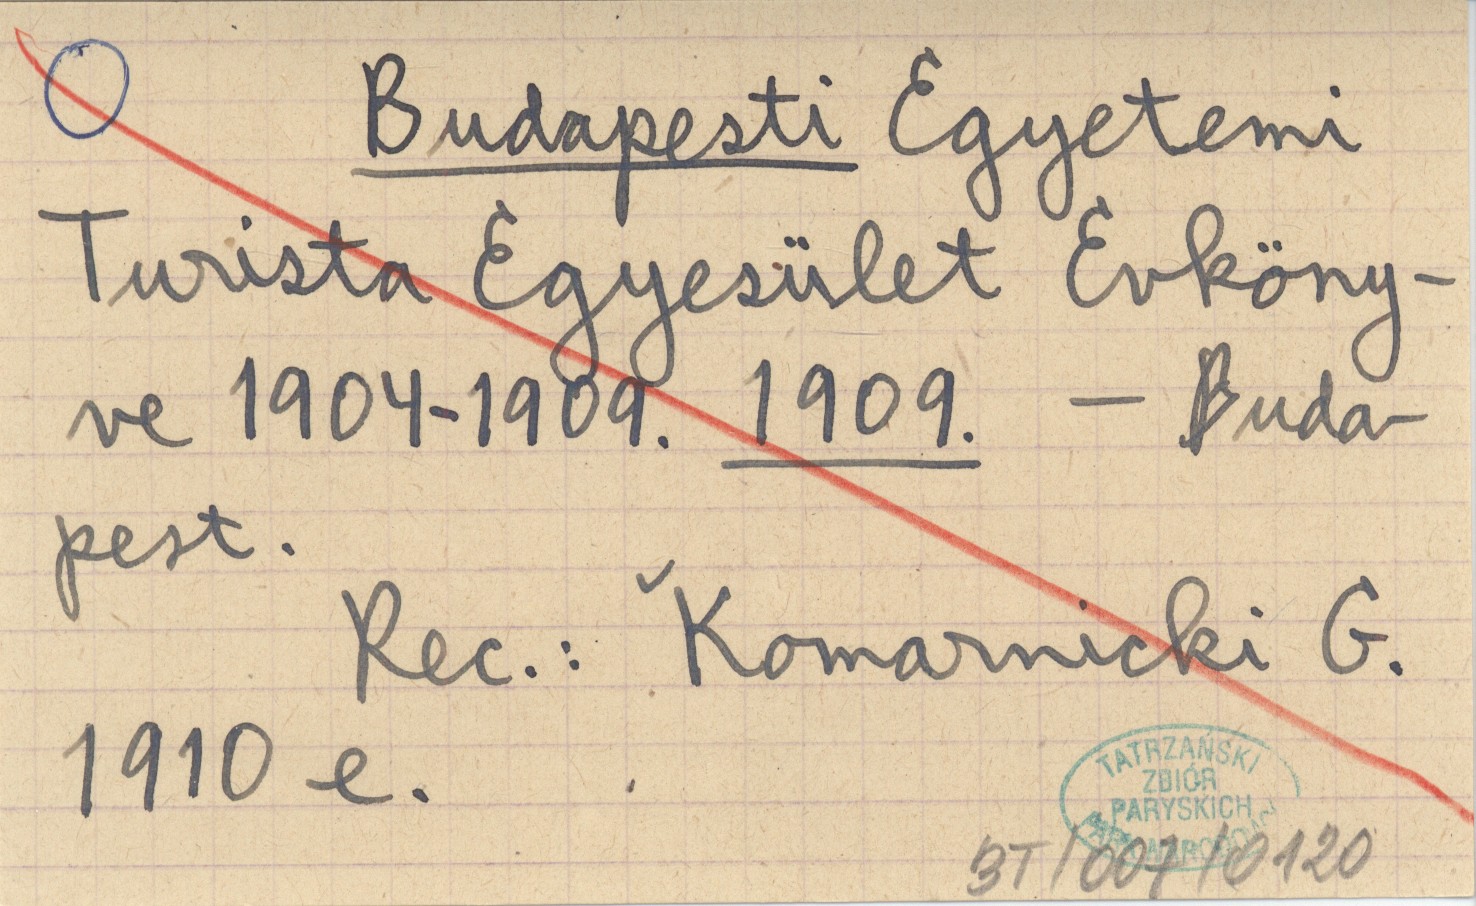 Budapesti Egyetemi
Turista Egyesület Évköny-
ve 1904-1909. 1909. — Buda-
pest.
Rec.: Komarnicki G.
1910 e.
TATRZAŃSKI
ZBIÓR
PARYSKICH
BT/007/0120